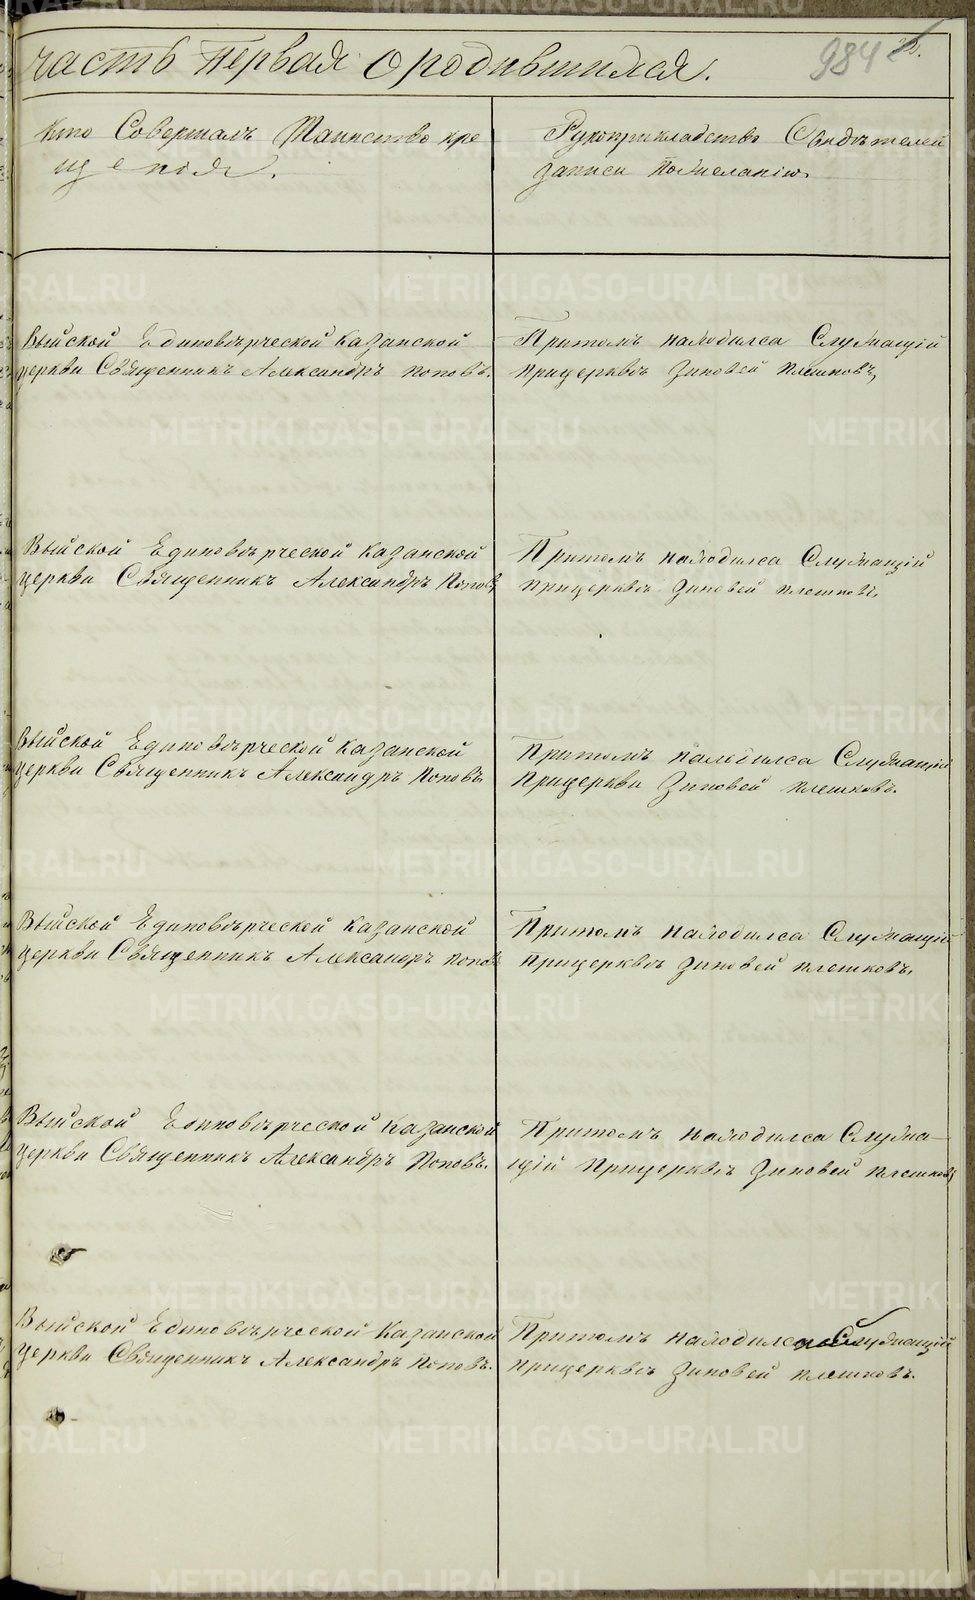 часть первая о родившихся.
984
Кто Совершалъ Таинство кре
щенія.
Рукоприкладство Свидѣтелей
записи по желанію.
Выйской Единовѣрческой Казанской
церкви Священникъ Александръ Поповъ.
Притомъ находился Служащій
прицерквѣ Зиновей Плешковъ,
Выйской Единовѣрческой Казанской
церкви Священникъ Александръ Поповъ
Притомъ находился Служащій
прицерквѣ Зиновей Плешковъ.
Выйской Единовѣрческой Казанской
церкви Священникъ Александръ Поповъ
Притомъ находился Служащій
прицеркви Зиновей Плешковъ.
Выйской Единовѣрческой Казанской
церкви Священникъ Александръ Поповъ
Притомъ находился Служащій
прицерквѣ Зиновей Плешковъ.
Выйской Единовѣрческой Казанской
церкви Священникъ Александръ Поповъ.
Притомъ находился Служа-
щій прицерквѣ Зиновей Плешковъ
Выйской Единовѣрческой Казанской
церкви Священникъ Александръ Поповъ.
Притомъ находился Служащій
прицерквѣ Зиновей Плешковъ.
METRIKI.GASO-URAL.RU